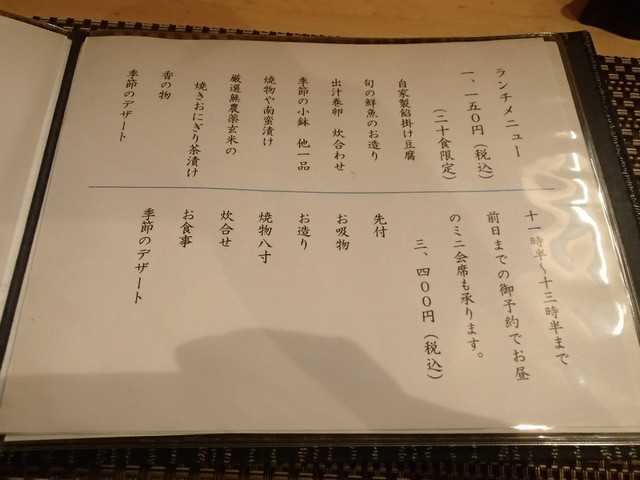 ランチメニュー
一、一五〇円（税込）
（二十食限定）
自家製餡掛け豆腐
旬の鮮魚のお造り
出汁巻卵 炊合わせ
季節の小鉢 他一品
焼物や南蛮漬け
厳選無農薬玄米の
焼きおにぎり茶漬け
香の物
季節のデザート
十一時半～十三時半まで
前日までの御予約でお昼
のミニ会席も承ります。
三、四〇〇円（税込）
先付
お吸物
お造り
焼物八寸
炊合せ
お食事
季節のデザート